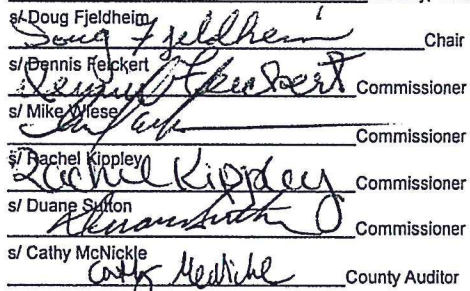 s/ Doug Fjeldheim
Doug Fjeldheim Chair
s/ Dennis Feickert
Dennis Feickert Commissioner
s/ Mike Wiese
Commissioner
s/ Rachel Kippley
Rachel Kippley Commissioner
s/ Duane Sutton
Duane Sutton Commissioner
s/ Cathy McNickle
Cathy McNickle County Auditor